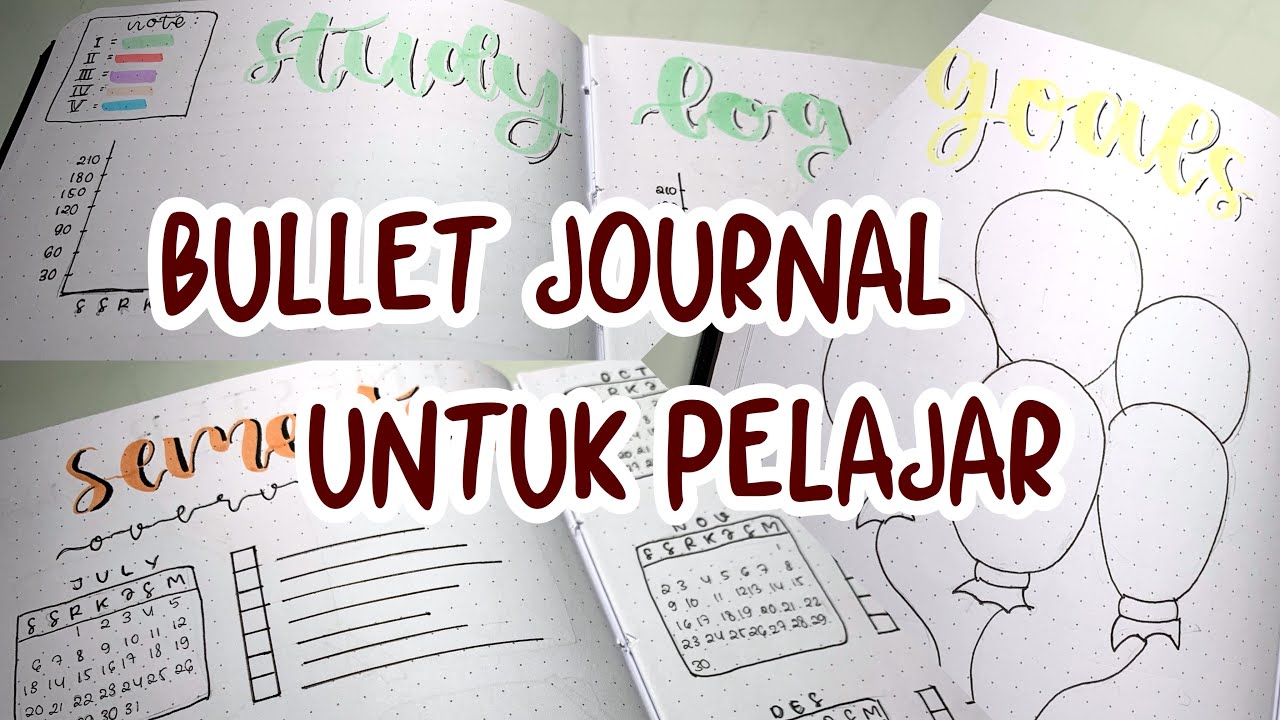 note:
I =
II =
III =
IV =
V =
study
log
goals
210
180
150
120
90
60
30
S S R K
210
BULLET JOURNAL
UNTUK PELAJAR
JULY
S S R K J S M
1 2 3 4 5
6 7 8 9 10 11 12
13 14 15 16 17 18 19
20 21 22 23 24 25 26
29 30 31
OCT
R K J
20 21
NOV
S S R K J S M
1
2 3 4 5 6 7 8
9 10 11 12 13 14 15
16 17 18 19 20 21 22
23 24 25 26 27 28 29
30
DES